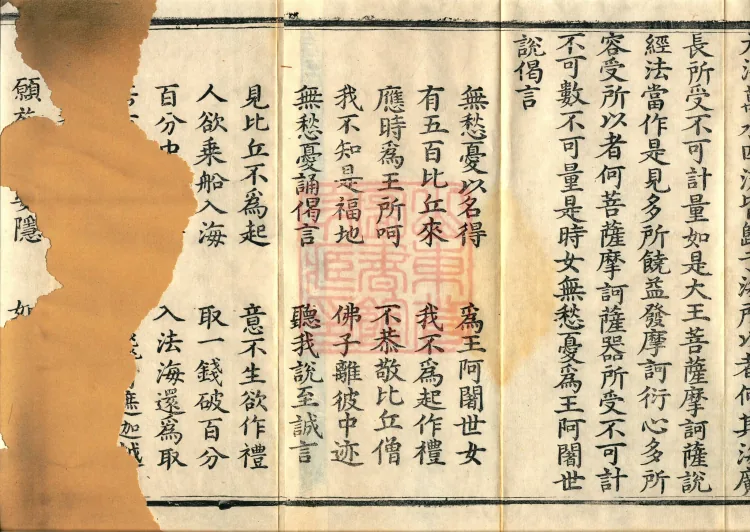 所以者何其海廣
長所受不可計量如是大王菩薩摩訶薩說
經法當作是見多所饒益發摩訶衍心多所
容受所以者何菩薩摩訶薩器所受不可計
不可數不可量是時女無愁憂爲王阿闍世
說偈言
無愁憂以名得　爲王阿闍世女
有五百比丘來　我不爲起作禮
應時爲王所呵　不恭敬比丘僧
我不知是福地　佛子離彼中迹
無愁憂誦偈言　聽我說至誠言
見比丘不爲起　意不生欲作禮
人欲乘船入海　取一錢破百分
百分中　入法海還爲取
無加
願　隱